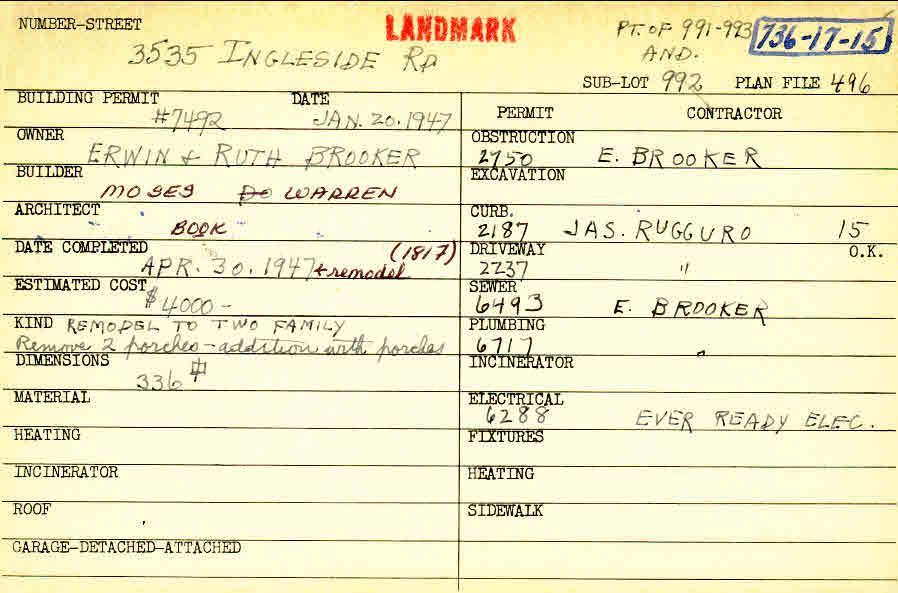 NUMBER-STREET LANDMARK PT. OF 991-993 736-17-15
3535 INGLESIDE RD AND.
SUB-LOT 992 PLAN FILE 496
BUILDING PERMIT DATE
#7492 JAN. 20. 1947
OWNER
ERWIN + RUTH BROOKER
BUILDER
MOSES WARREN
ARCHITECT
BOOK
DATE COMPLETED (1817)
APR. 30. 1947 + remodel
ESTIMATED COST
$4000-
KIND REMODEL TO TWO FAMILY
Remove 2 porches - addition with porches
DIMENSIONS
336 #
MATERIAL
HEATING
INCINERATOR
ROOF
GARAGE-DETACHED-ATTACHED
PERMIT CONTRACTOR
OBSTRUCTION
2750 E. BROOKER
EXCAVATION
CURB.
2187 JAS. RUGGURO 15
DRIVEWAY O.K.
2237 "
SEWER
6493 E. BROOKER
PLUMBING
6717 "
INCINERATOR
ELECTRICAL
6288 EVER READY ELEC.
FIXTURES
HEATING
SIDEWALK